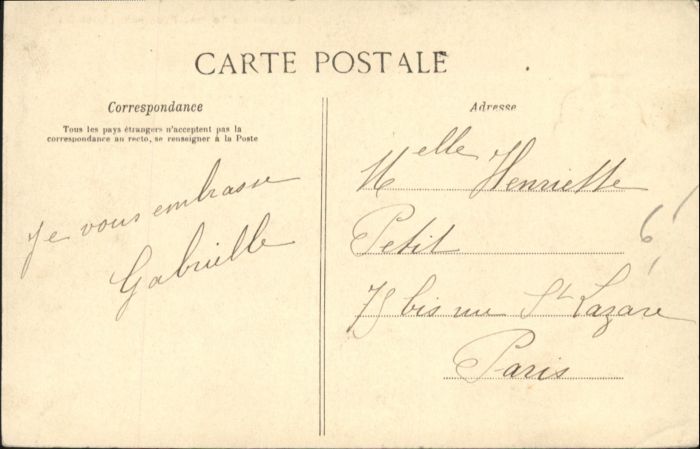 CARTE POSTALE
Correspondance
Tous les pays étrangers n'acceptent pas la
correspondance au recto, se renseigner à la Poste
Je vous embrasse
Gabrielle
Adresse
Melle Henriette
Petit
75 bis rue St Lazare
Paris
6